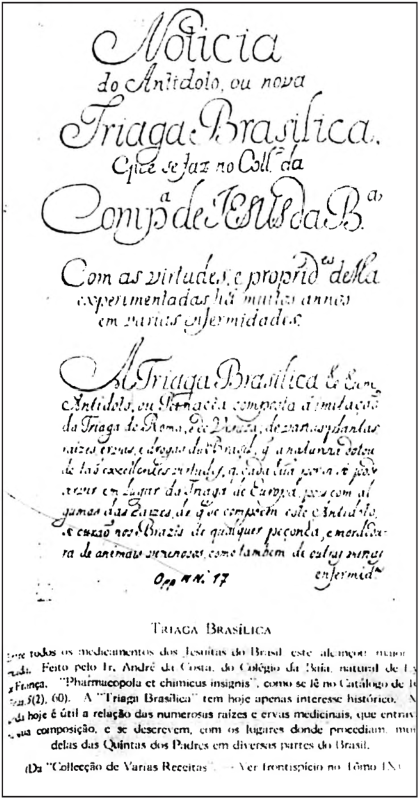 Noticia
do Antidolo, ou nova
Triaga Brasilica.
Que se faz no Coll.º da
Comp.ª de JESUS da B.ª
Com as virtudes, e propried.es della
experimentadas há muitos annos
em varias enfermidades.
A Triaga Brasilica he hum
Antidolo, ou Panacea composta á imitação
da Triaga de Roma, e de Veneza, de varias plantas
raizes, ervas, e drogas do Brasil, q a natureza dotou
de taõ excellentes virtudes, q cada hũa por si só pode
servir em lugar da Triaga de Europa, pois com al
gumas das raizes, de q se compoem este Antidolo,
se curaõ nos Brazis de qualquer peçonha, e mordedu
ra de animais venenosos, como tambem de outras
enfermid.es
Opp NN. 17
TRIAGA BRASÍLICA
todos os medicamentos dos Jesuítas do Brasil este alcançou maior
Feito pelo Ir. André da Costa, do Colégio da Baía, natural de
França. "Pharmacopola et chimicus insignis", como se lê no Catálogo de
5(2), 60). A "Triaga Brasílica" tem hoje apenas interesse histórico.
hoje é útil a relação das numerosas raízes e ervas medicinais, que
sua composição, e se descrevem, com os lugares donde procediam,
delas das Quintas dos Padres em diversas partes do Brasil.
(Da "Collecção de Varias Receitas". — Ver frontispício no Tômo IV).